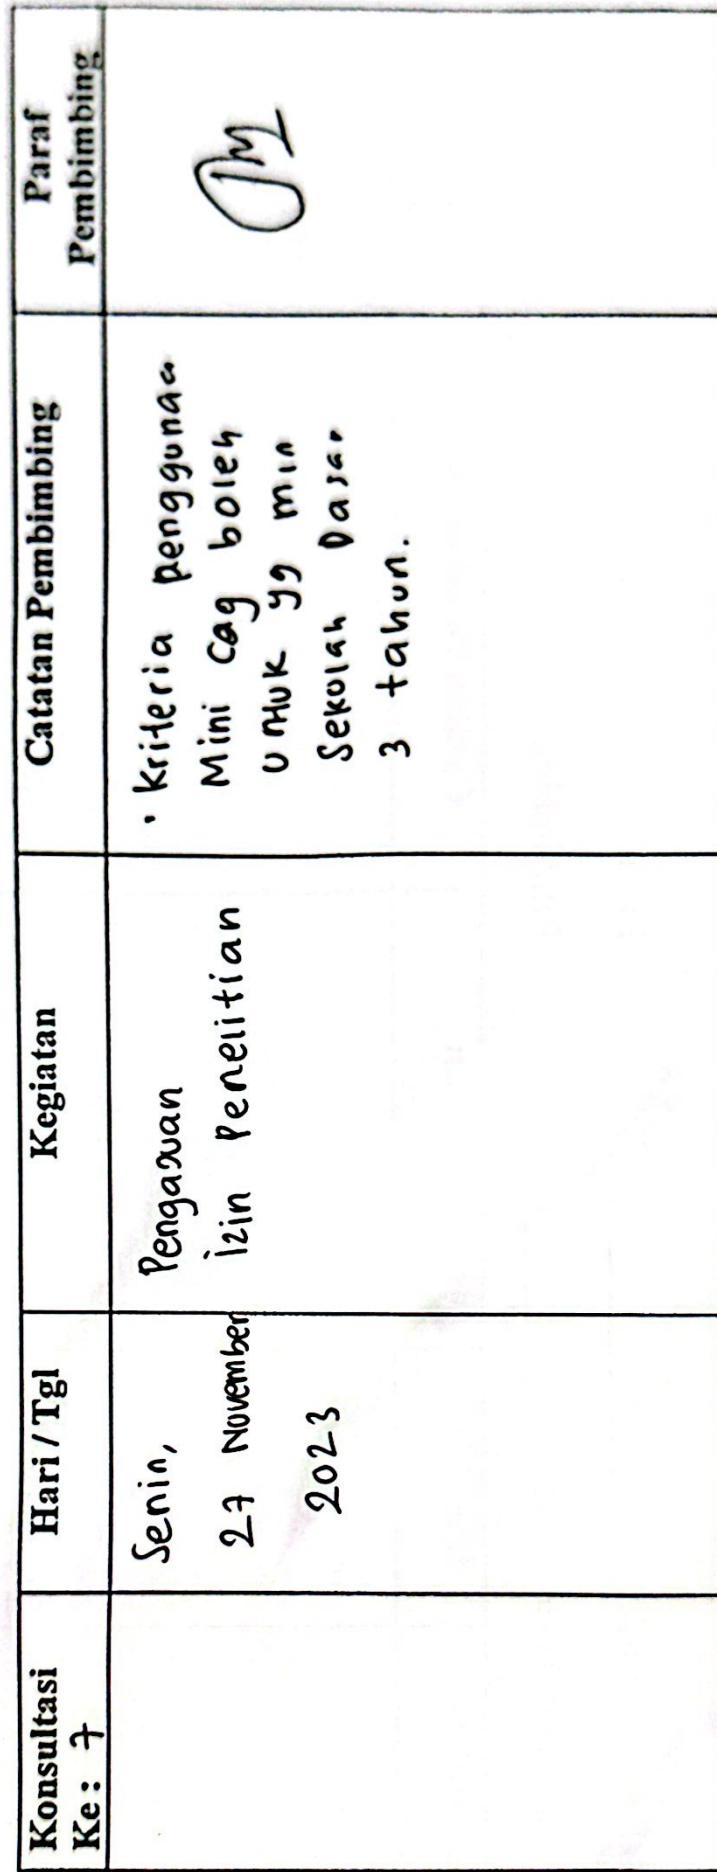 Konsultasi
Ke : 7
Hari / Tgl
Kegiatan
Catatan Pembimbing
Paraf
Pembimbing
Senin,
27 November
2023
Pengajuan
izin Penelitian
• Kriteria penggunaa
Mini Cag boleh
untuk yg min
Sekolah Dasar
3 tahun.